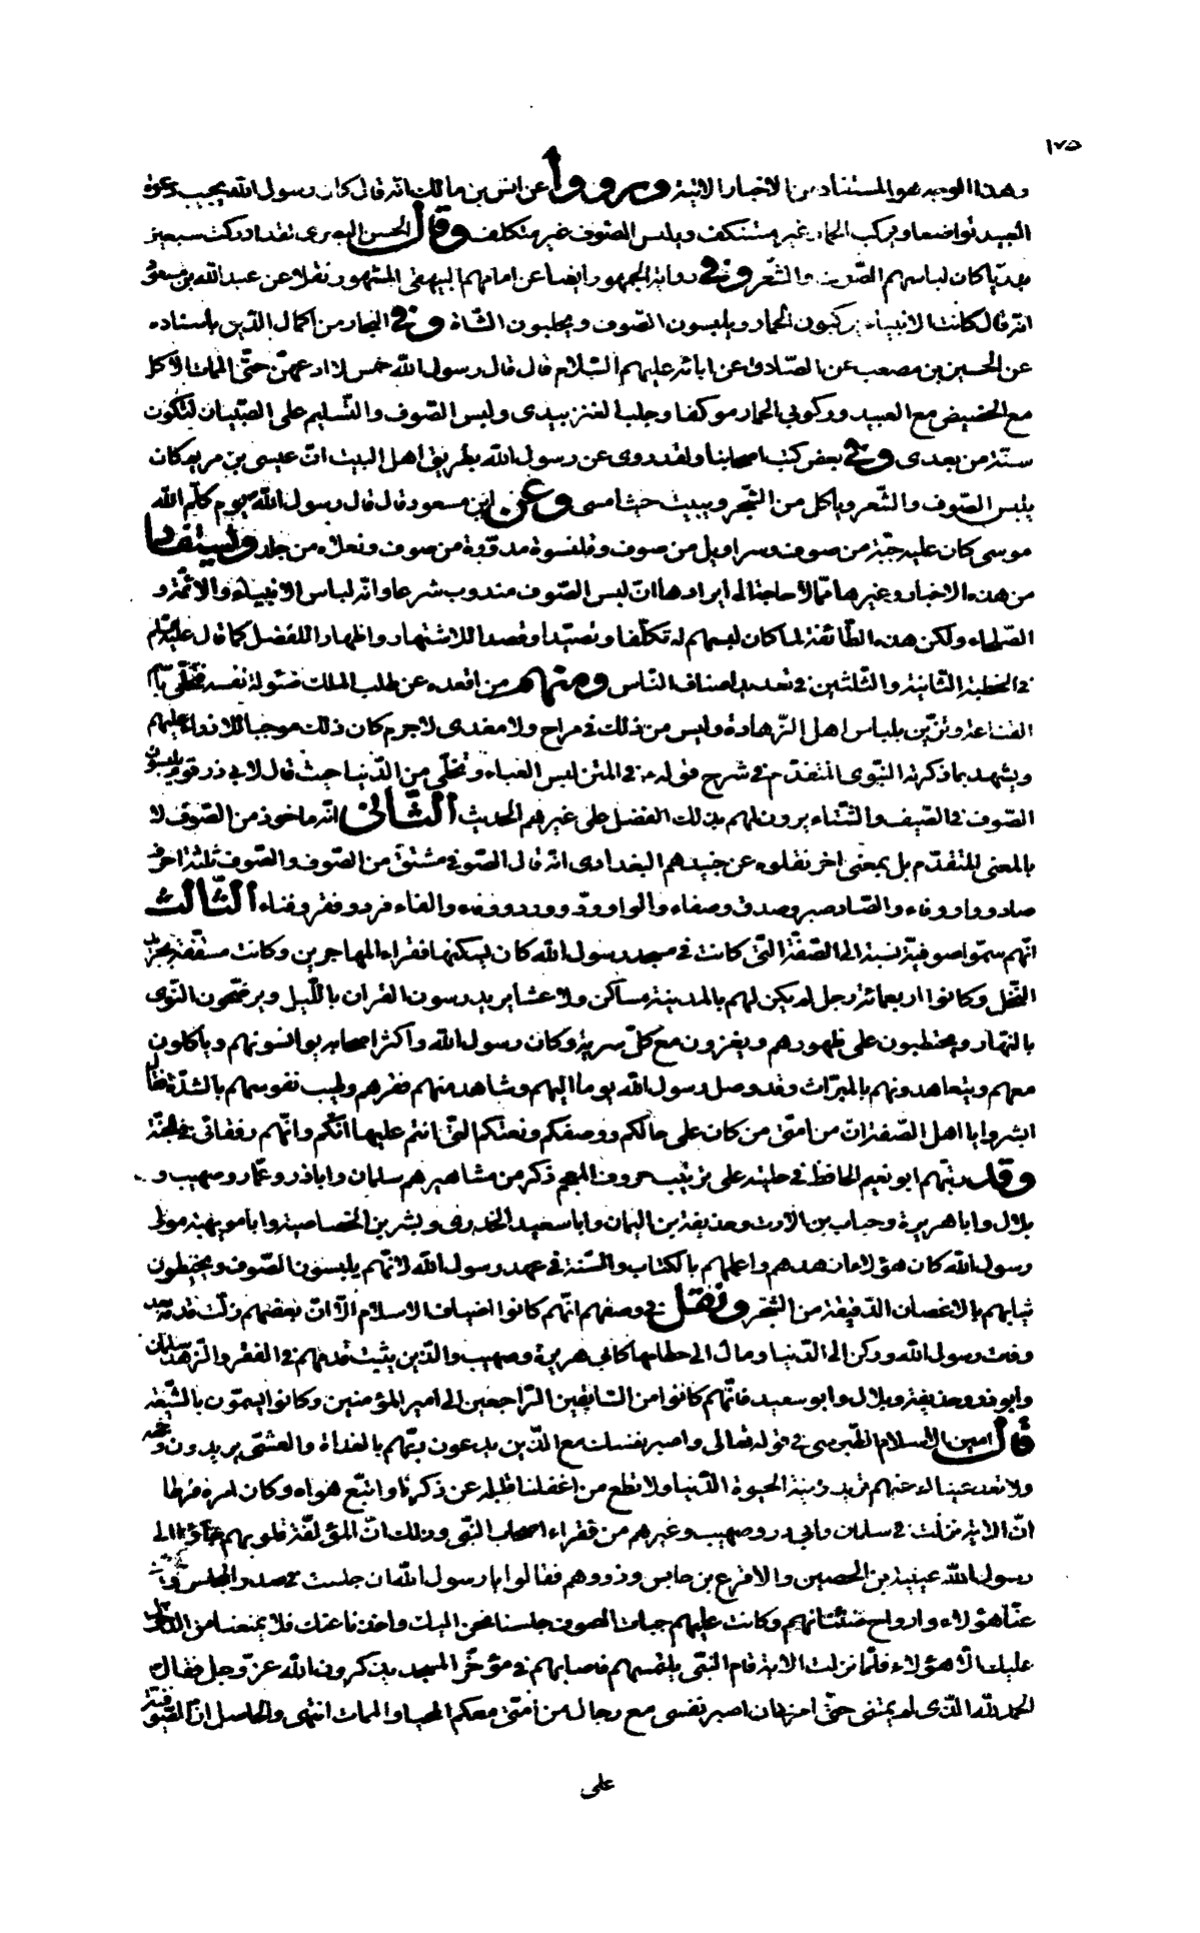 ١٧٥
وهذا الوجه هو المستفاد من الاخبار الاتية ورووا عن انس بن مالك انه قال كان رسول الله يجيب دعوة
العبيد تواضعا ويركب الحمار غير مستنكف ويلبس الصوف غير متكلف وقال الحسن البصرى لقد ادركت سبعين
بدريا كان لباسهم الصوف والشعر وفى رواية الجمهور ايضا عن امامهم البيهقى المشهور نقلا عن عبد الله بن مسعود
انه قال كانت الانبياء يركبون الحمار ويلبسون الصوف ويحلبون الشاة وفى البحار من اكمال الدين باسناده
عن الحسين بن مصعب عن الصادق عن ابائه عليهم السلام قال قال رسول الله خمس لا ادعهن حتى الممات الاكل
مع الحضيض مع العبيد وركوبى الحمار موكفا وحلب العنز بيدى ولبس الصوف والتسليم على الصبيان لتكون
سنة من بعدى وفى بعض كتب اصحابنا ولقد روى عن رسول الله بطريق اهل البيت ان عيسى بن مريم كان
يلبس الصوف والشعر وياكل من الشجر ويبيت حيث امسى وعن ابن مسعود قال قال رسول الله يوم كلم الله
موسى كان عليه جبة من صوف وسراويل من صوف وقلنسوة مدورة من صوف ونعلاه من جلد وليستفاد
من هذه الاخبار وغيرها مما لا حاجة الى ايرادها ان لبس الصوف مندوب شرعا وانه لباس الانبياء والائمة و
الصلحاء ولكن هذه الطائفة لما كان لبسهم له تكلفا وتصيدا وقصدا للاشتهار واظهارا للفضل كما قال عليه السلم
فى الخطبة الثانية والثلثين فى تعديد اصناف الناس ومنهم من اقعده عن طلب الملك ضئولة نفسه فتحلى باسم
القناعة وتزين بلباس اهل الزهادة وليس من ذلك فى مراح ولا مغدى لا جرم كان ذلك موجبا للازراء عليهم
ويشهد بما ذكرته النبوى المتقدم فى شرح قوله فى المتن لبس العباء وتخلى من الدنيا حيث قال لابى ذر قوم يلبسون
الصوف فى الصيف والشتاء يرون لهم بذلك الفضل على غيرهم الحديث الثانى انه ماخوذ من الصوف لا
بالمعنى المتقدم بل بمعنى اخر نقلوه عن جنيدهم البغدادى انه قال الصوفى مشتق من الصوف والصوف ثلثة احرف
صاد وواو وفاء والصاد صبر وصدق وصفاء والواو ود وورد ووفاء والفاء فرد وفقر وفناء الثالث
انهم سموا صوفية نسبة الى الصفة التى كانت فى مسجد رسول الله كان يسكنها فقراء المهاجرين وكانت مسقفة بجريد
النخل وكانوا اربعمائة رجل لم يكن لهم بالمدينة مساكن ولا عشاير يدرسون القران بالليل ويرضخون النوى
بالنهار ويحتطبون على ظهورهم ويغزون مع كل سرية وكان رسول الله واكثر اصحابه يوانسونهم وياكلون
معهم ويتعاهدونهم بالمبرات وقد وصل رسول الله يوما اليهم وشاهد منهم فقرهم وطيب نفوسهم بالشدة فقال
ابشروا يا اهل الصفة ان من امتى من كان على حالكم ووصفكم ونعتكم التى انتم عليها انكم وانهم رفقائى فى الجنة
وقد رتبهم ابو نعيم الحافظ فى حليته على ترتيب حروف المعجم ذكر من مشاهيرهم سلمان واباذر وعمار وصهيب و
بلال وابا هريرة وخباب بن الارت وحذيفة بن اليمان وابا سعيد الخدرى وبشر بن الخصاصية وابا مويهبة مولى
رسول الله كان هؤلاء ازهدهم واعلمهم بالكتاب والسنة فى عهد رسول الله لانهم يلبسون الصوف ويخيطون
ثيابهم بالاغصان الدقيقة من الشجر ونقل فى وصفهم انهم كانوا اضياف الاسلام الا ان بعضهم زلت قدمه بعد
وفات رسول الله وركن الى الدنيا ومال الى حطامها كابى هريرة وصهيب والذين يثبت قدمهم فى الفقر والزهد سلمان
وابوذر وحذيفة وبلال وابو سعيد فانهم كانوا من السابقين الراجعين الى امير المؤمنين وكانوا يسمون بالشيعة
قال امين الاسلام الطبرسى فى قوله تعالى واصبر نفسك مع الذين يدعون ربهم بالغداة والعشى يريدون وجهه
ولا تعد عيناك عنهم تريد زينة الحيوة الدنيا ولا تطع من اغفلنا قلبه عن ذكرنا واتبع هواه وكان امره فرطا
ان الاية نزلت فى سلمان وابى ذر وصهيب وغيرهم من فقراء اصحاب النبى وذلك ان المؤلفة قلوبهم جاؤا الى
رسول الله عيينة بن الحصين والاقرع بن حابس وذووهم فقالوا يا رسول الله ان جلست فى صدر المجلس
عنا هؤلاء وارواح صنانهم وكانت عليهم جبات الصوف جلسنا نحن اليك واخذنا عنك فلا يمنعنا من الدخول
عليك الا هؤلاء فلما نزلت الاية قام النبى يلتمسهم فاصابهم فى مؤخر المسجد يذكرون الله عز وجل فقال
الحمد لله الذى لم يمتنى حتى امرنى ان اصبر نفسى مع رجال من امتى معكم المحيا والممات انتهى والحاصل ان الصوفية
على